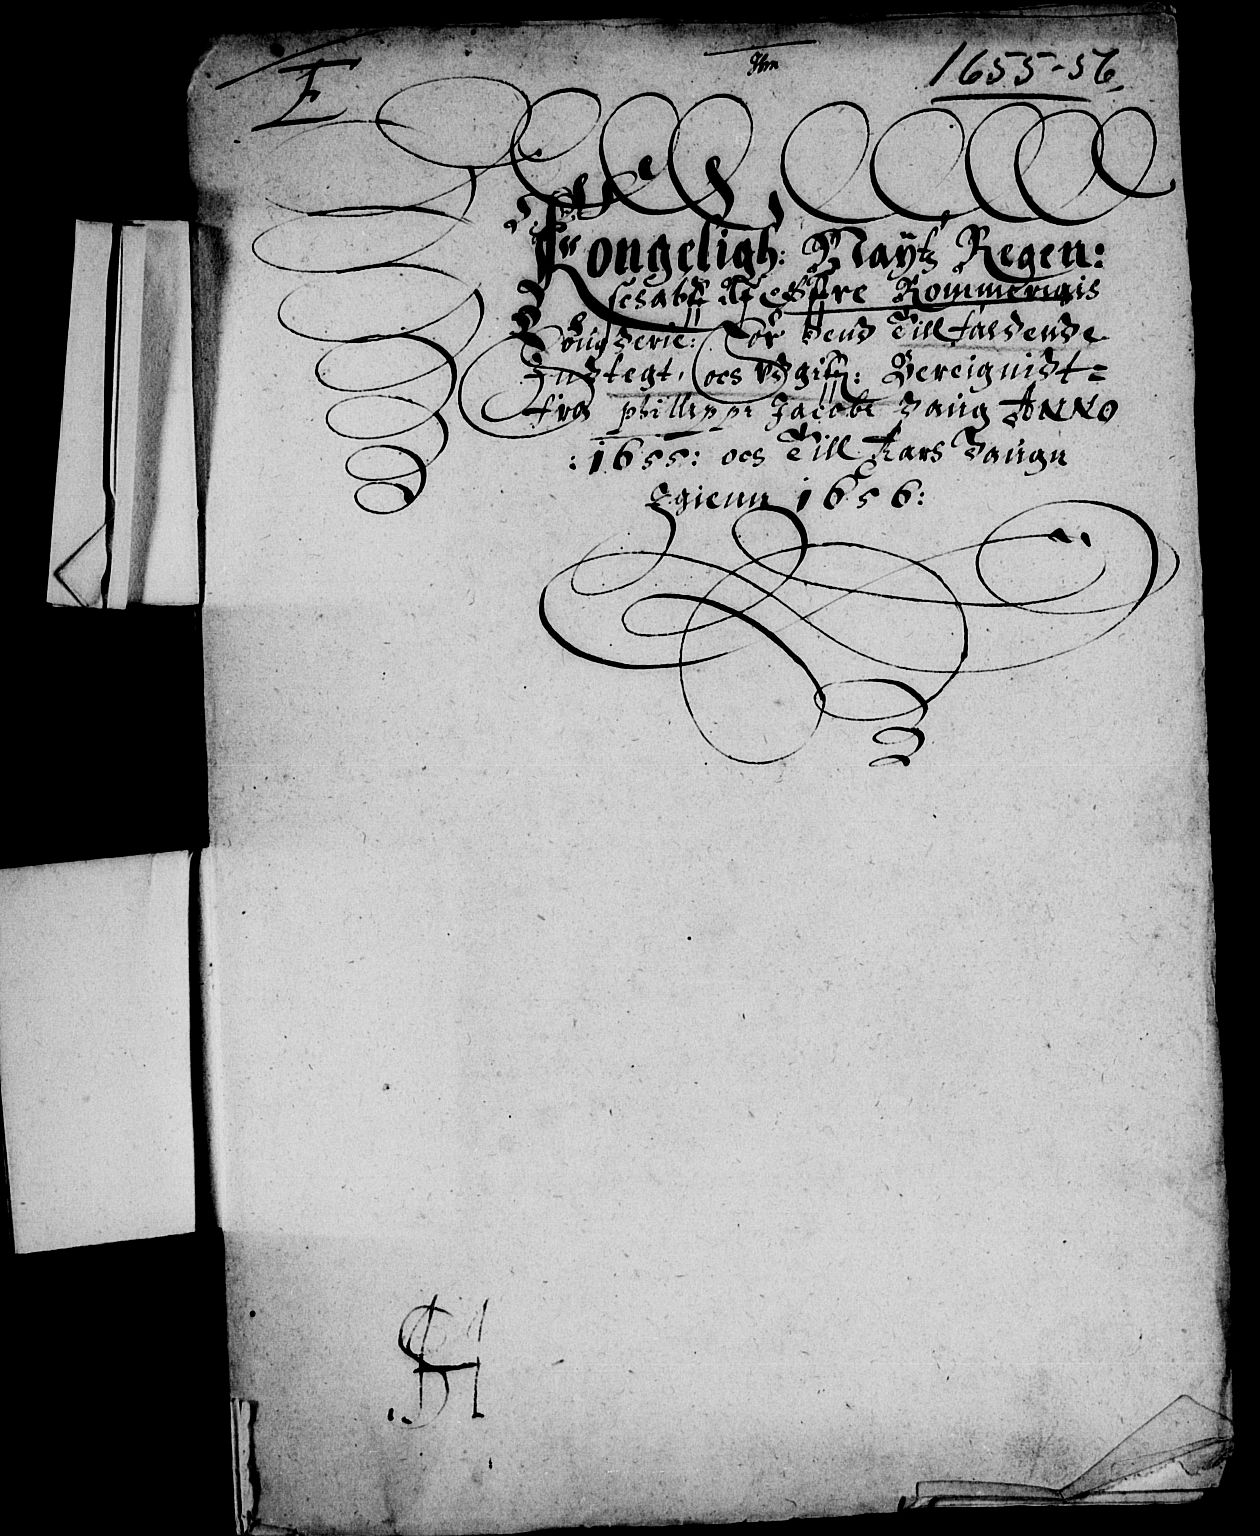 1655-56.
Kongeligh: Maÿtz Regen:
schabs Aff Øffre Rommerigis
fougderie: for dend Till faldende
Indtegt, oes vdgifft: Bereignidt=
fra philippi Jacobi daug ANNO
:1655: oes Till Aars daugn
Egienn 1656: